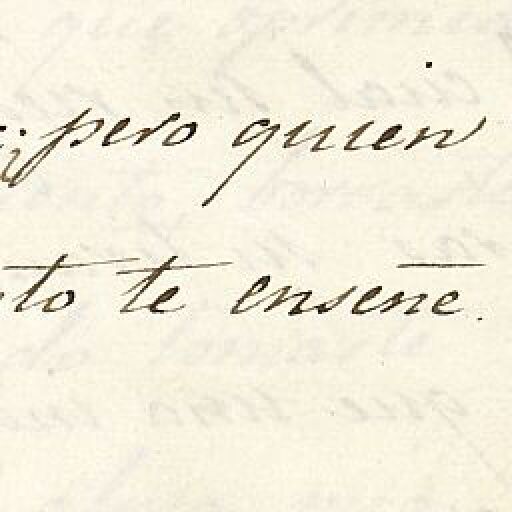 ; pero quien
to te enseñe.